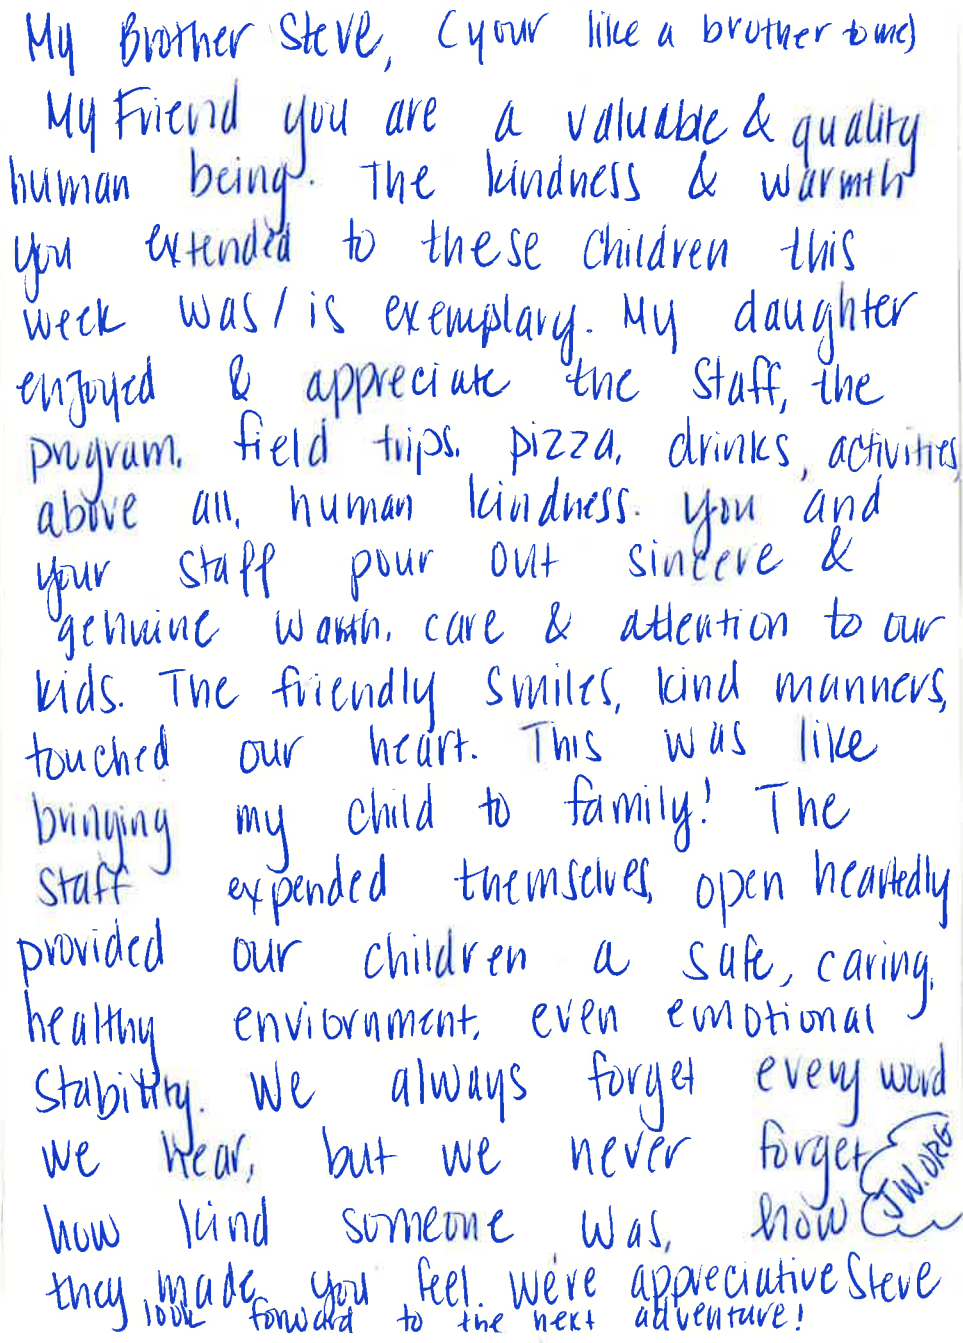 My Brother Steve, (your like a brother to me)
My Friend you are a valuable & quality
human being. The kindness & warmth
you extended to these children this
week was/is exemplary. My daughter
enjoyed & appreciate the staff, the
program, field trips, pizza, drinks, activities,
above all, human kindness. You and
your staff pour out sincere &
genuine warth, care & attention to our
kids. The friendly smiles, kind manners,
touched our heart. This was like
bringing my child to family! The
staff expended themselves, open heartedly
provided our children a safe, caring,
healthy enviornment, even emotional
stability. We always forget every word
we hear, but we never forget
JW.ORG
how kind someone was, how
they made you feel. We're appreciative Steve
look forward to the next adventure!